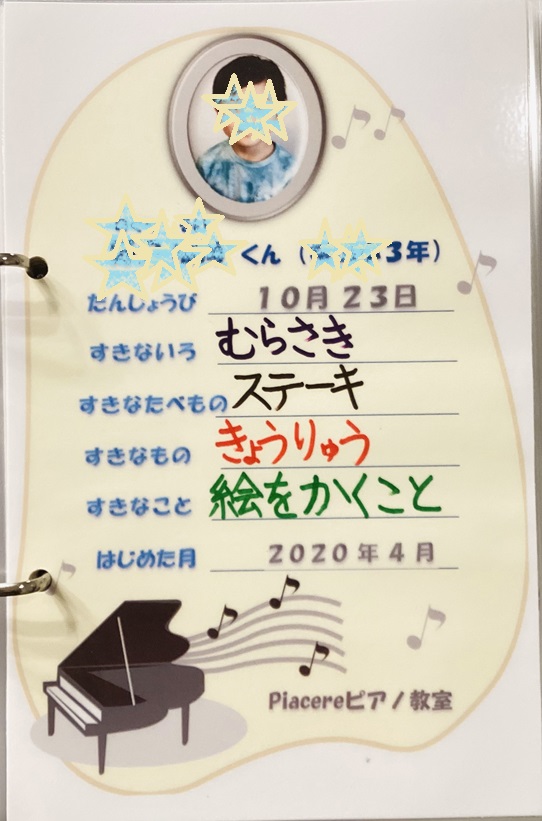 くん（3年）
たんじょうび 10月23日
すきないろ むらさき
すきなたべもの ステーキ
すきなもの きょうりゅう
すきなこと 絵をかくこと
はじめた月 2020年4月
Piacereピアノ教室